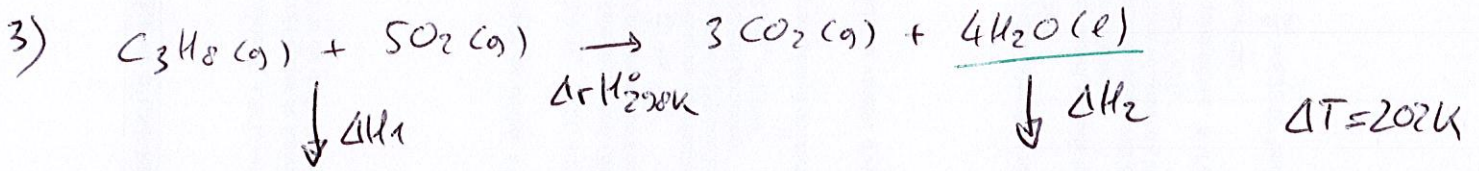 3) C3H8(g) + 5O2(g) → 3CO2(g) + 4H2O(l)
ΔrH°298K
↓ΔH1 ↓ΔH2 ΔT=202K